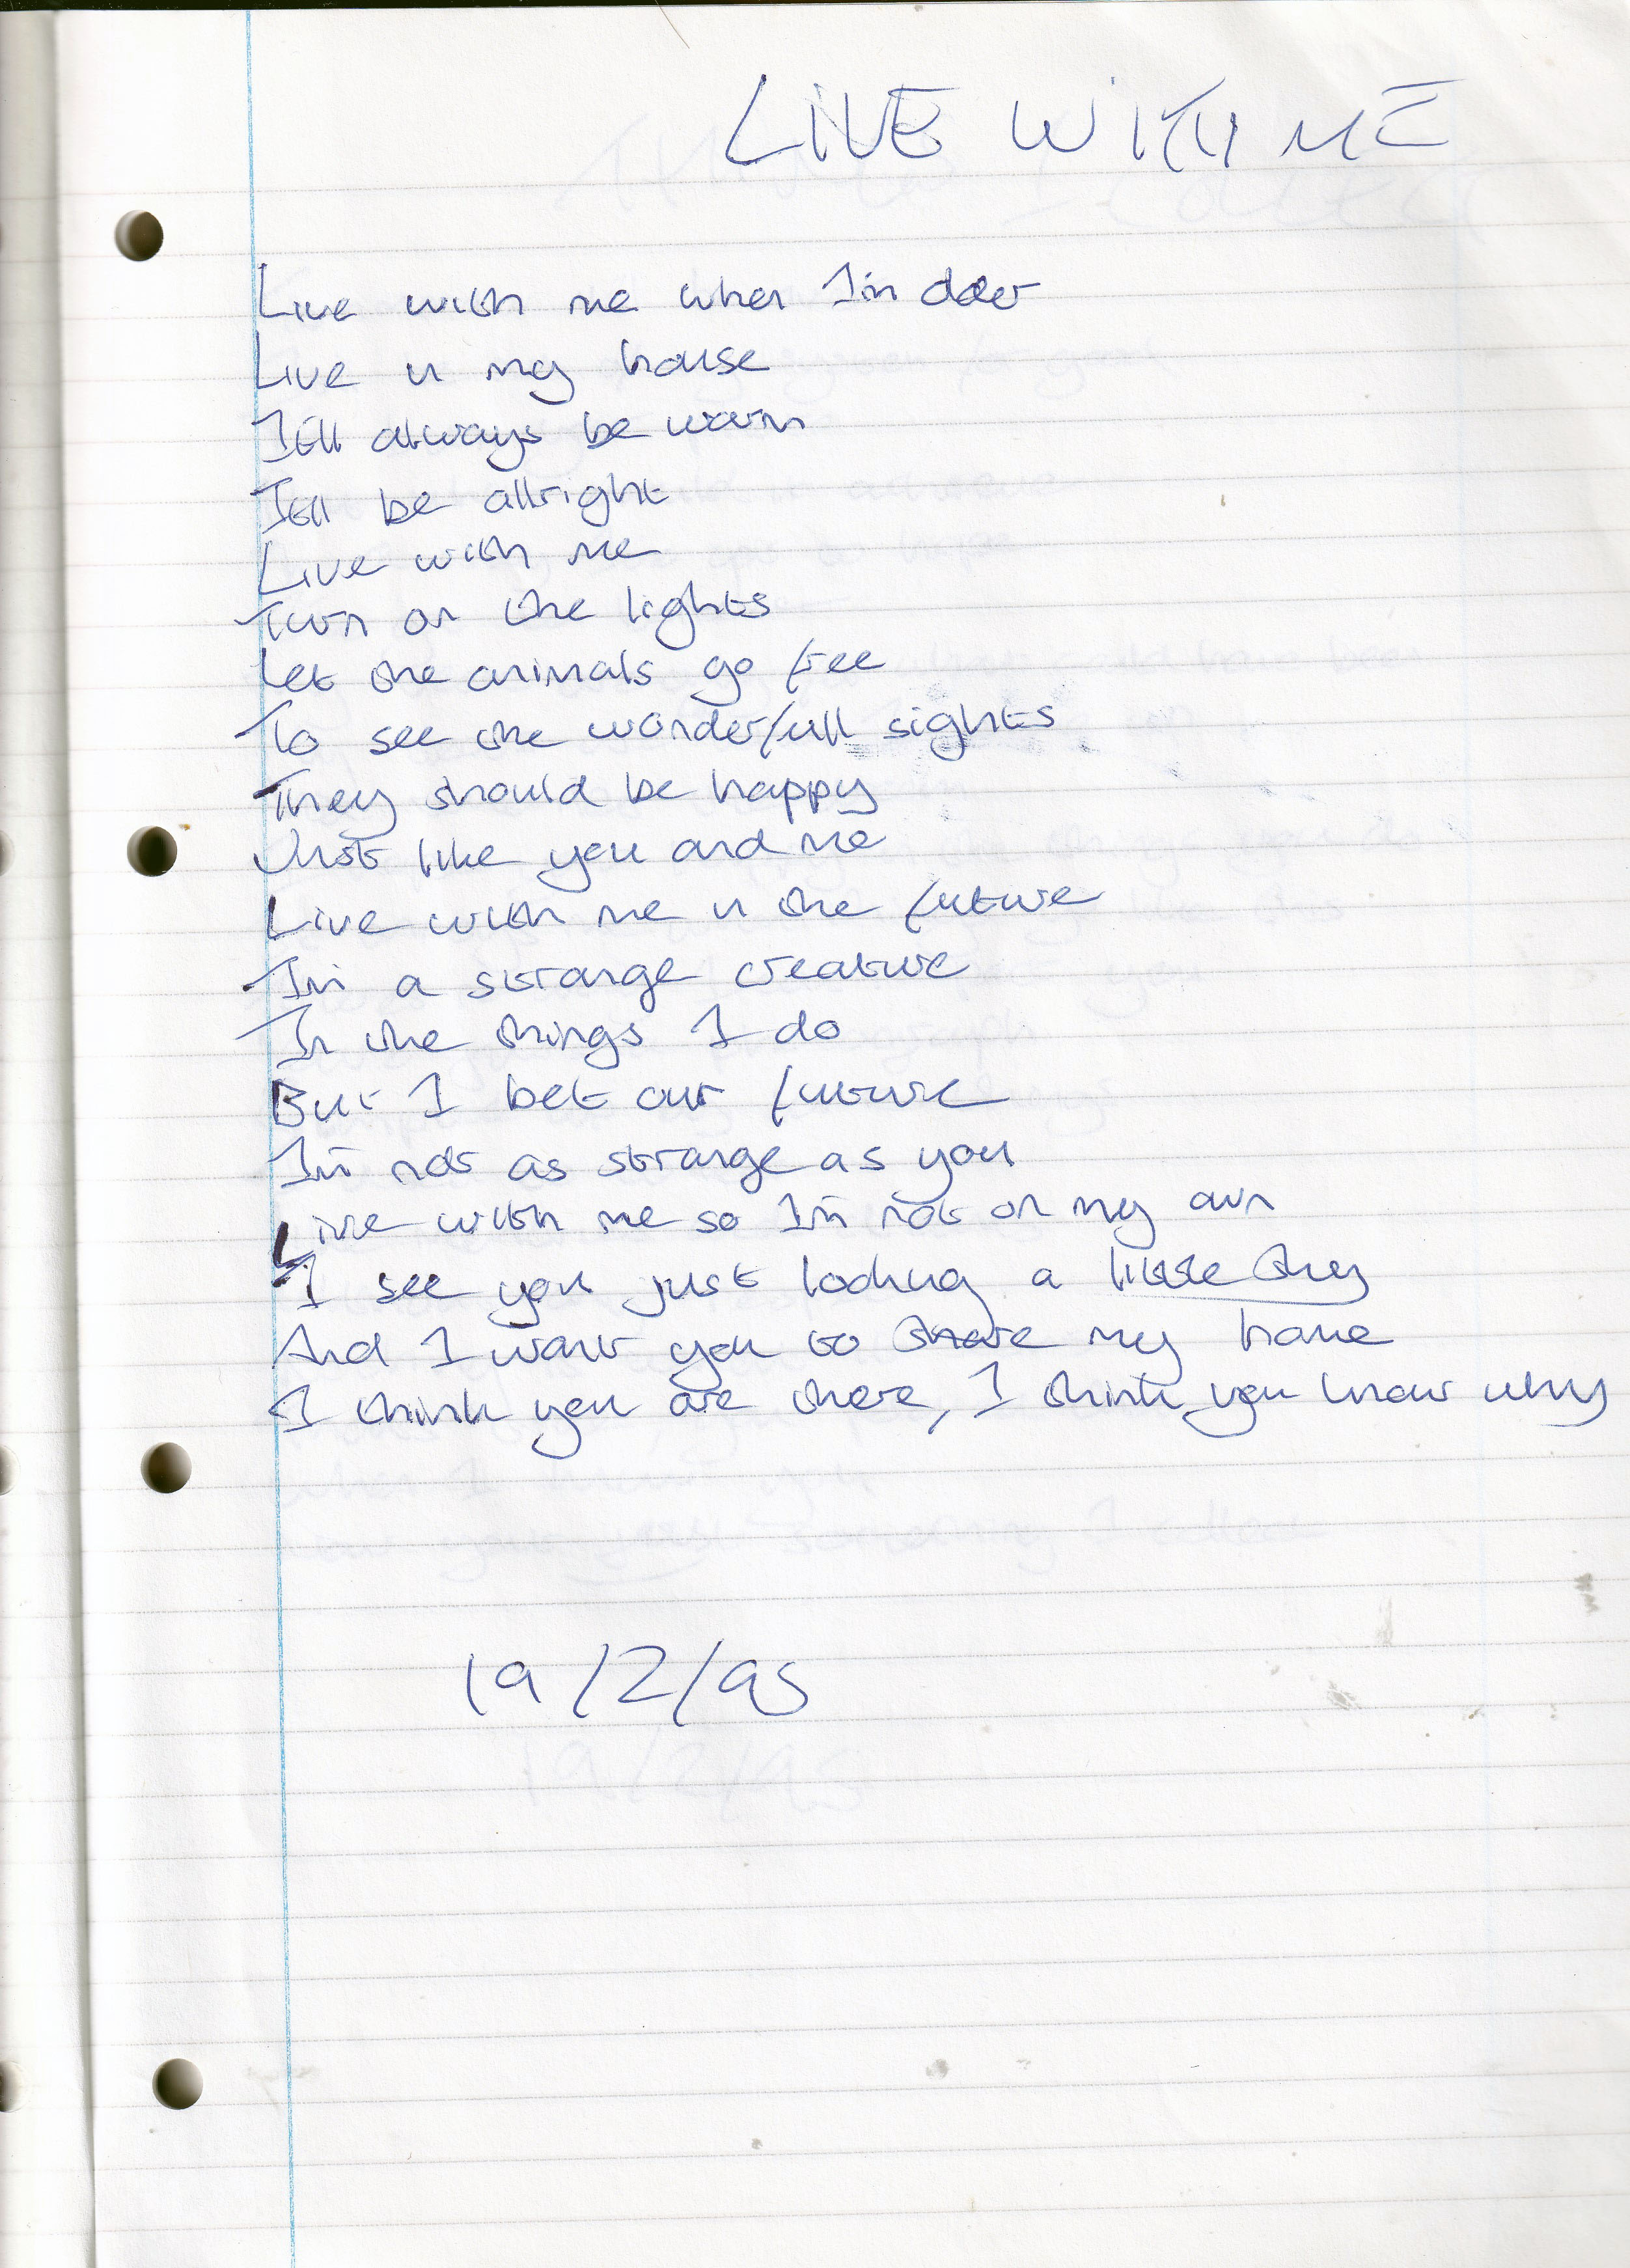 LIVE WITH ME
Live with me when I'm older
Live in my house
It'll always be warm
It'll be allright
Live with me
Turn on the lights
Let the animals go free
To see the wonderfull sights
They should be happy
Just like you and me
Live with me in the future
I'm a strange creature
In the things I do
But I bet our future
Isn't not as strange as you
Live with me so I'm not on my own
I see you just looking a little shy
And I want you to share my home
I think you are there, I think you know why
19/2/95